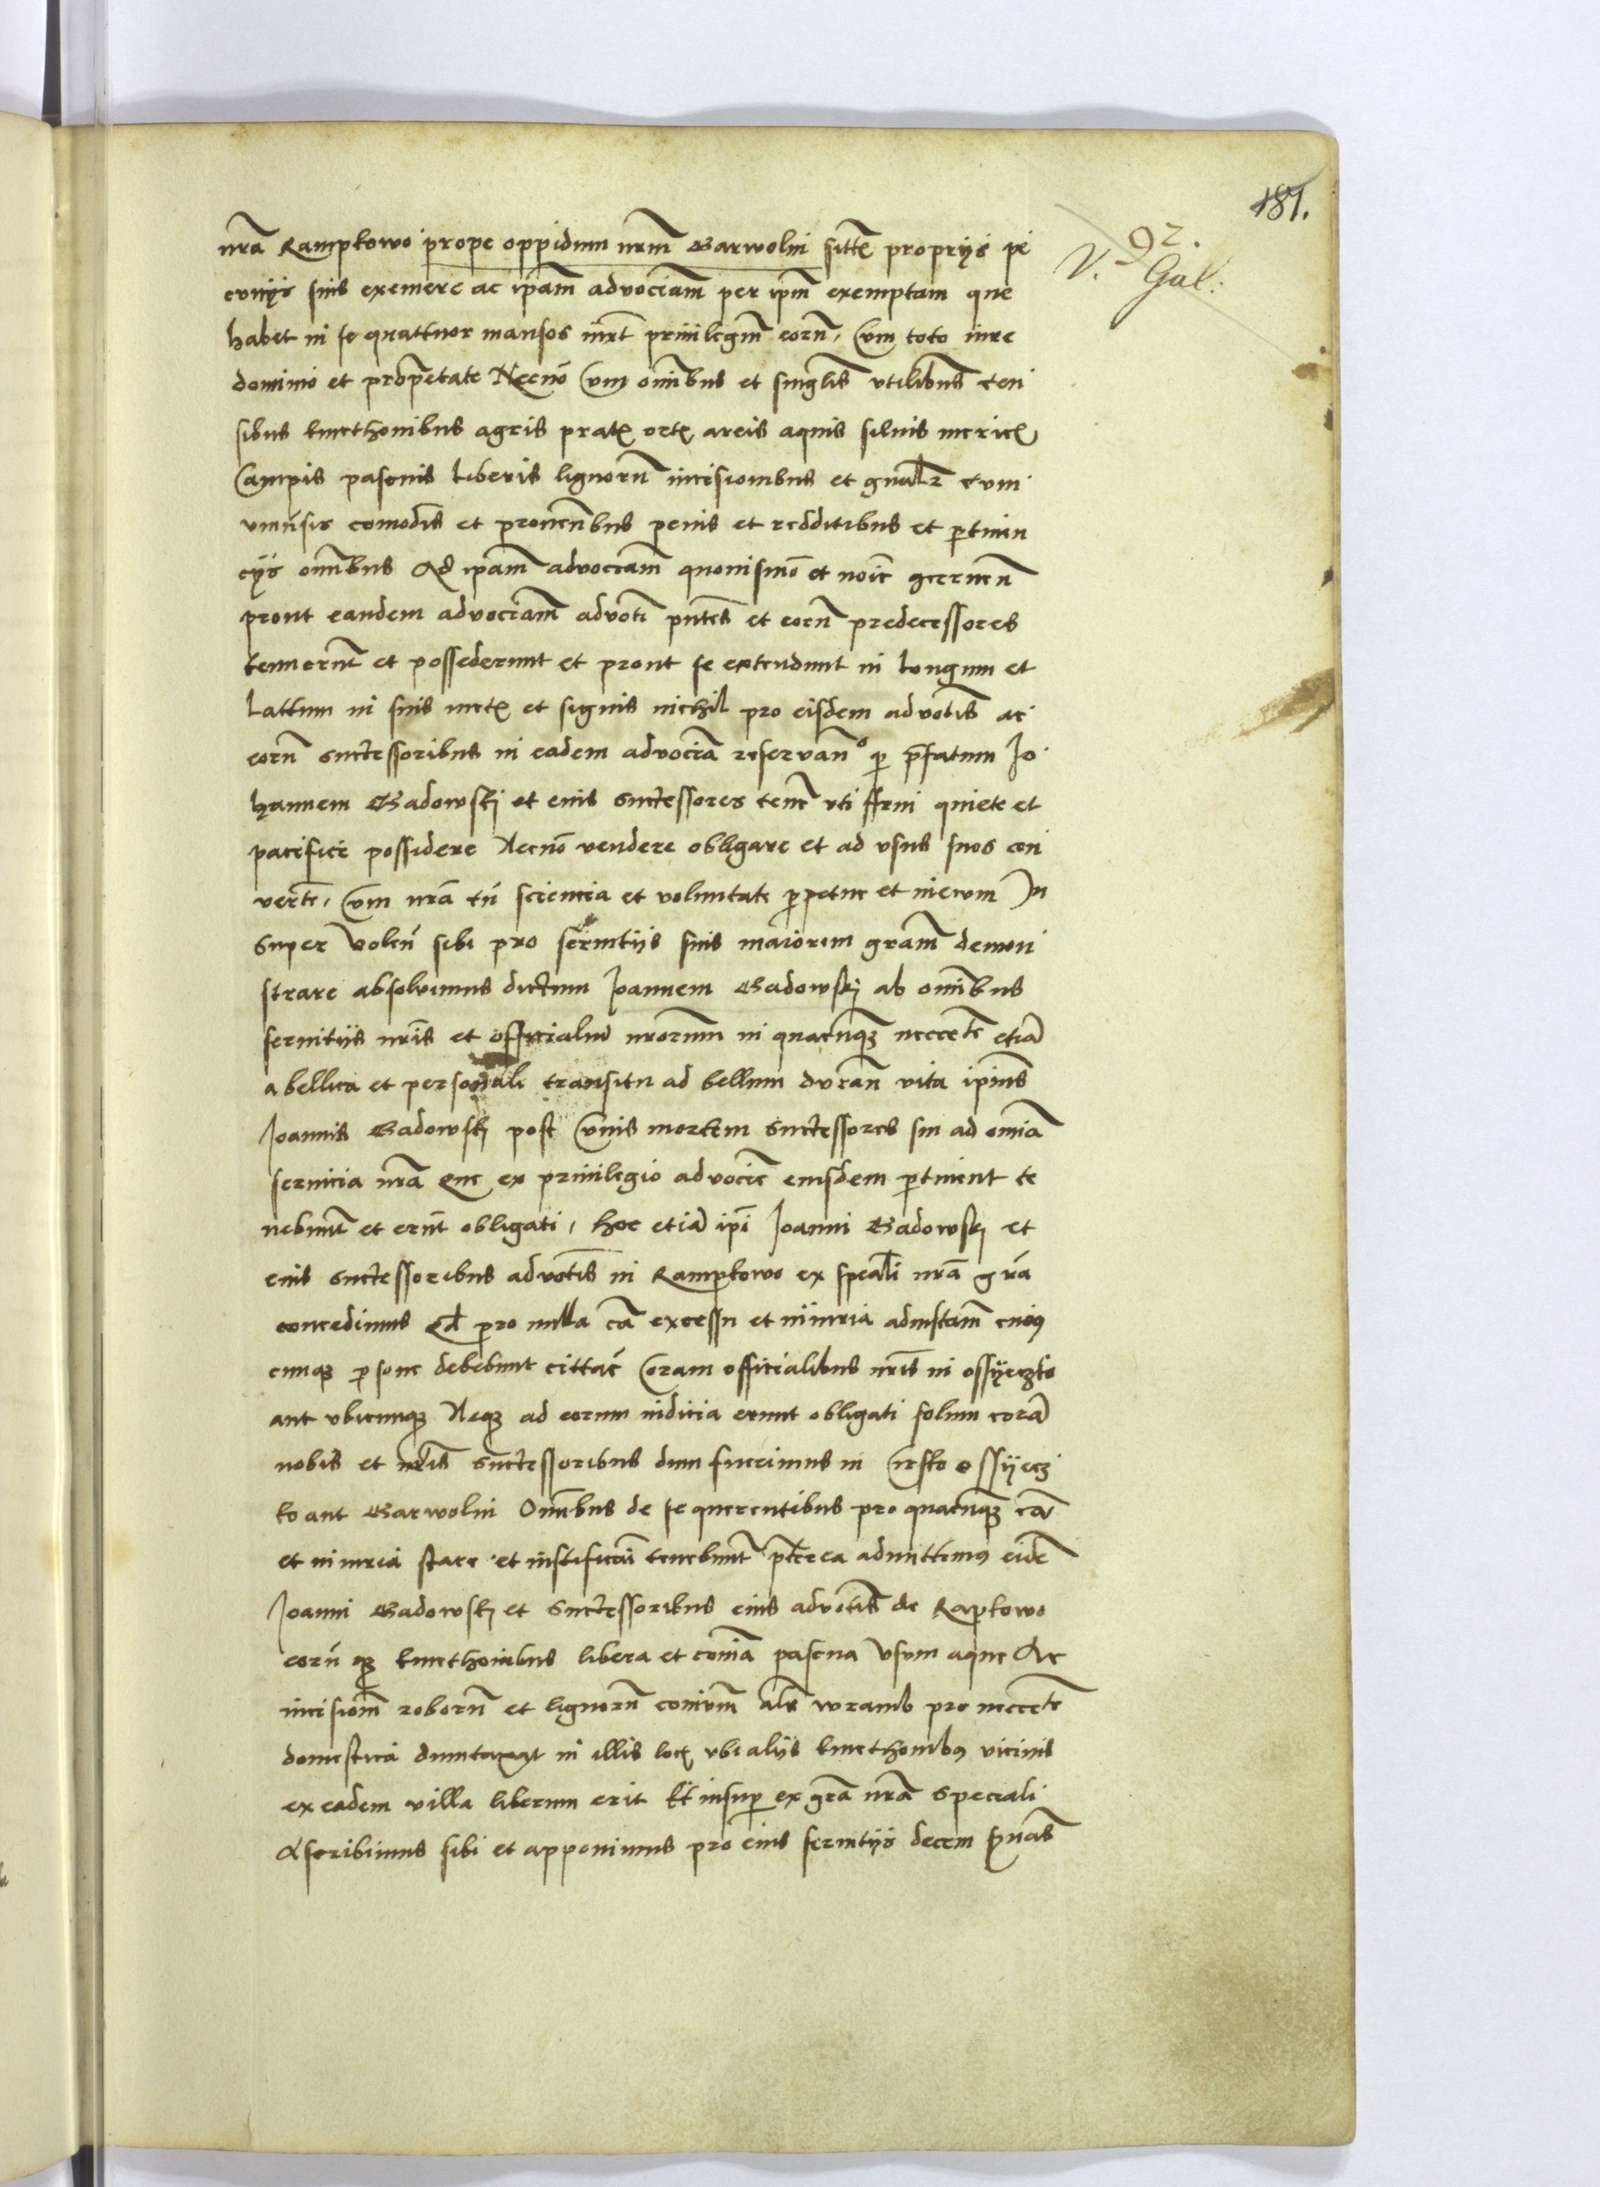 181.
92.
V. Gal:
nrã Rampkowo prope oppidum nrm̃ Garwolin sittẽ proprijs pe
cunijs suis exemere ac ipam̃ advociam̃ per ipm̃ exemptam que
habet in se quattuor mansos iuxt̃ privilegm̃ eorũ, Cum toto iure
dominio et propetate Necnõ Cum omĩbus et singlis̃ vtilibus̃ cen
sibus kmethonibus agris prat ort areis aquis silvis meric
Campis pascuis liberis lignorũ incisionibus et gnalr cum
vniũsis comodis et provenĩbus penis et redditibus et ptinen
cijs omĩbus Ad ipam̃ advociam̃ quovismõ et noĩe
prout eandem advociam̃ advoti pntẽs et eorũ predecessores
tenuerũt et possederunt et prout se extendunt in longum et
lattum in suis met et signis nichil pro eisdem advotis ac
eorũ successoribus in eadem advociã reservañ p p̃fatum Jo
hannem Gadowskj et eius successores teñ uti frui quiete et
pacifice possidere Necnõ vendere obligare et ad vsus suos con
vertẽ, Cum nrã tñ sciencia et voluntate ppetue et in ewm In
super Volen̄ sibi pro servitijs suis maiorem gram̃ demon
strare absolvimus dictum Joannem Gadowskj ab omĩbus
servitijs nrĩs et officialiũ nrorum̃ in quacũqz neccẽte etiã
a bellica et personali transitu ad bellum durañ vita ipiũs
Joannis Gadowskj post Cuius mortem successores sui ad omiã
servicia nrã Que ex privilegio advocie eiusdem ptinent te
nebunt̃ et erũt obligati, hoc etiã ipĩ Joanni Gadowskj et
eius successoribus advotis in Rampkowo ex speali nrã grã
concedimus Qd pro nulla cã excessu et iniuria ad instam̃ cuiõ
cunqz psone debebunt cittaĩ Coram officialibus nrĩs in ossijeczko
aut vbicunqz Neqz ad eorum iudicia erunt obligati solum corã
nobis et nrĩs successoribus dum fuerimus in Czrsko ossijecz
ko aut Garwolin Omĩbus de se querentibus pro quacũqz cã
et iniuria stare et iustificari tenebunt̃ p̃terea admittimus eidẽ
Joanni Gadowskj et successoribus eius advotis de Rapkowo
eorũ qz kmethonibus libera et comiã pascua Vsum aque Ac
incisiom̃ roborũ et lignorũ comũm alr wramb pro neccẽte
domestica dumtaxat in illis loc vbi alijs kmethonibus vicinis
ex eadem villa liberum erit Et insup ex grã nrã speciali
Ascribimus sibi et apponimus pro eius servitijs decem